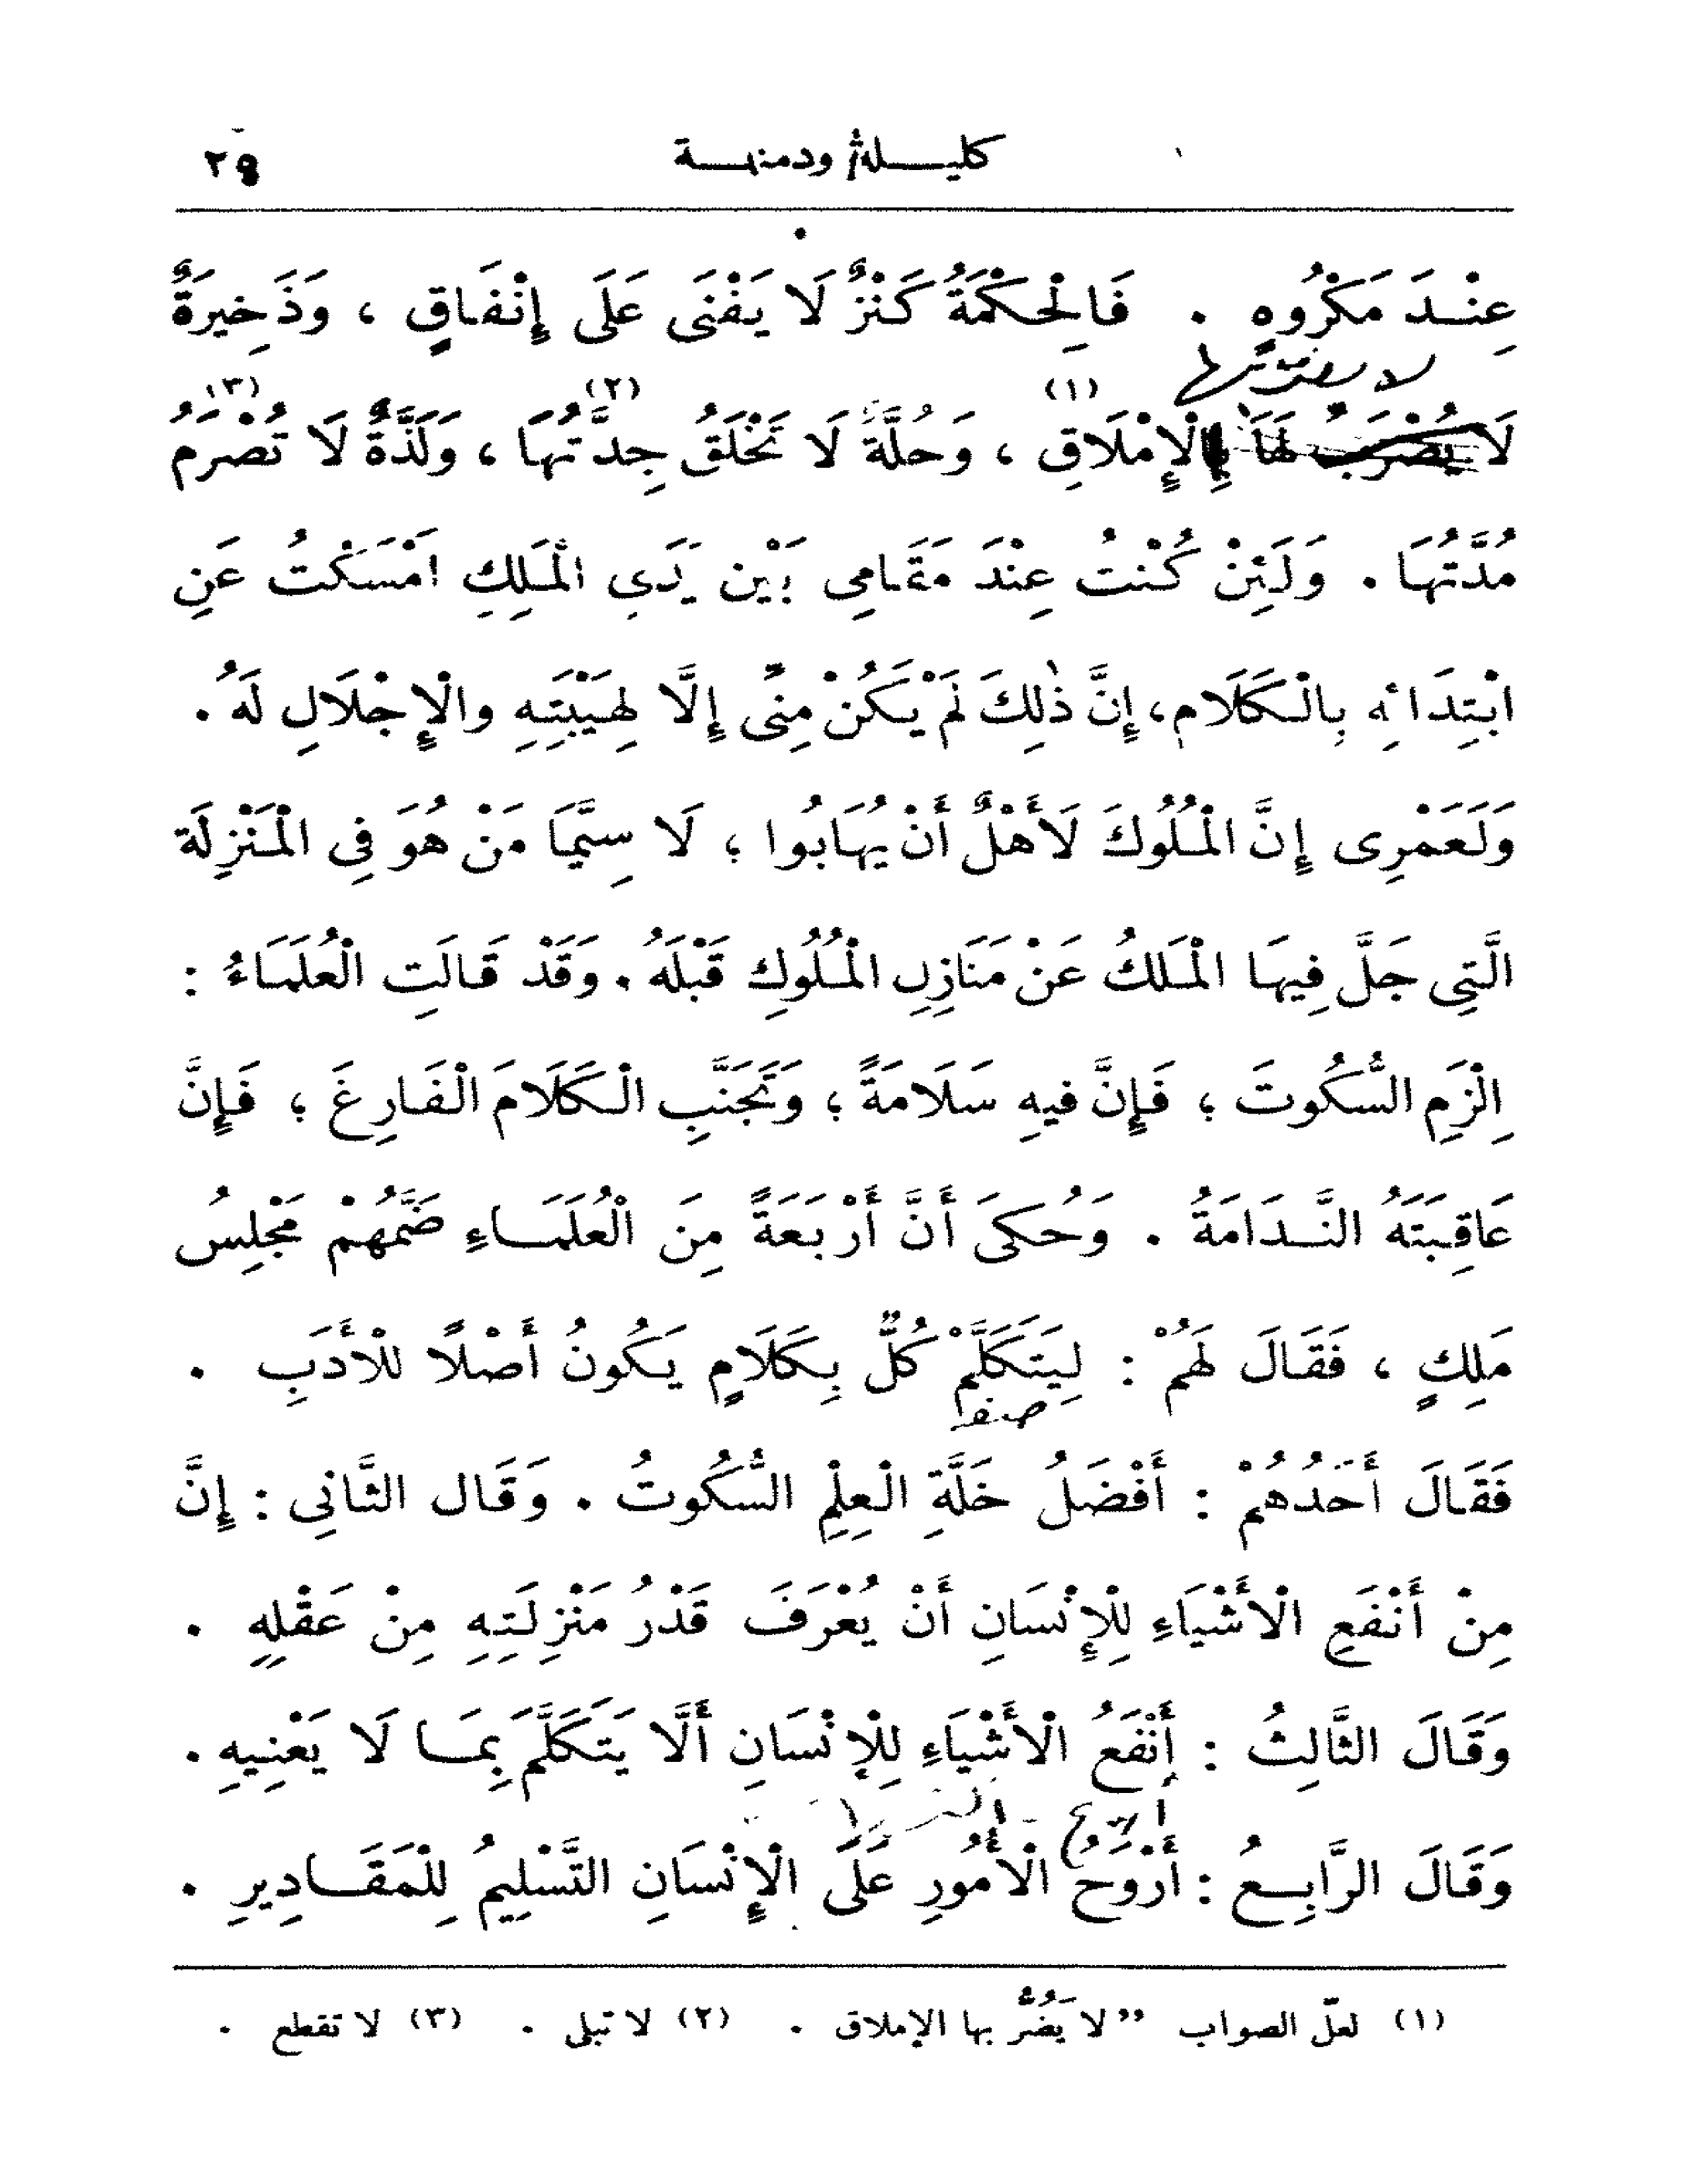 كليلة ودمنة
عِنْدَ مَكْرُوهٍ . فَالِحْكْمَةُ كَنْزٌ لَا يَفْنَى عَلَى إِنْفَاقٍ ، وَذَخِيرَةٌ
لَا يُضْرَبُ لَهَا بِالْإِمْلَاقِ (١) ، وَحُلَّةٌ لَا تَخْلَقُ جِدَّتُهَا (٢) ، وَلَذَّةٌ لَا تُصْرَمُ (٣)
مُدَّتُهَا . وَلَئِنْ كُنْتُ عِنْدَ مَقَامِى بَيْن يَدَىِ الْمَلِكِ امْسَكْتُ عَنِ
ابْتِدَائِه بِالْكَلَام، إِنَّ ذٰلِكَ لَمْ يَكُنْ مِنِّى إِلَّا لِهَيْبَتِهِ والْإِجْلَالِ لَهُ .
وَلَعَمْرِى إِنَّ الْمُلُوكَ لَأَهْلٌ أَنْ يُهَابُوا ؛ لَا سِيَّمَا مَنْ هُوَ فِى الْمَنْزِلَة
الَّتِى جَلَّ فِيهَا الْمَلكُ عَنْ مَنَازِلِ الْمُلُوكِ قَبْلَهُ . وَقَدْ قَالَتِ الْعُلَمَاءُ :
اِلْزَمِ السُّكُوتَ ؛ فَإِنَّ فيهِ سَلَامَةً ؛ وَتَجَنَّبِ الْكَلَامَ الْفَارِغَ ؛ فَإِنَّ
عَاقِبَتَهُ النَّدَامَةُ . وَحُكىَ أَنَّ أَرْبَعَةً مِنَ الْعُلَمَاءِ ضَمَّهُمْ مَجْلِسُ
مَلِكٍ ، فَقَالَ لَهُمْ : لِيَتَكَلَّمْ كُلٌّ بِكَلَامٍ يَكُونُ أَصْلًا للْأَدَبِ .
فَقَالَ أَحَدُهُمْ : أَفْضَلُ خَلَّةِ الْعِلْمِ السُّكُوتُ . وَقَال الثَّانِى : إِنَّ
مِنْ أَنْفَعِ الْأَشْيَاءِ لِلْإِنْسَانِ أَنْ يُعْرَفَ قَدْرُ مَنْزِلَتِهِ مِنْ عَقْلِهِ .
وَقَالَ الثَّالِثُ : أَنْفَعُ الْأَشْيَاءِ لِلْإِنْسَانِ أَلَّا يَتَكَلَّمَ بِمَا لَا يَعْنِيهِ .
وَقَالَ الرَّابِعُ : أَرْوَحُ الْأُمُورِ عَلَى الْإِنْسَانِ التَّسْلِيمُ لِلْمَقَادِيرِ .
(١) لعلّ الصواب ”لا يَضُرُّ بها الإملاق . (٢) لا تبلى . (٣) لا تقطع .